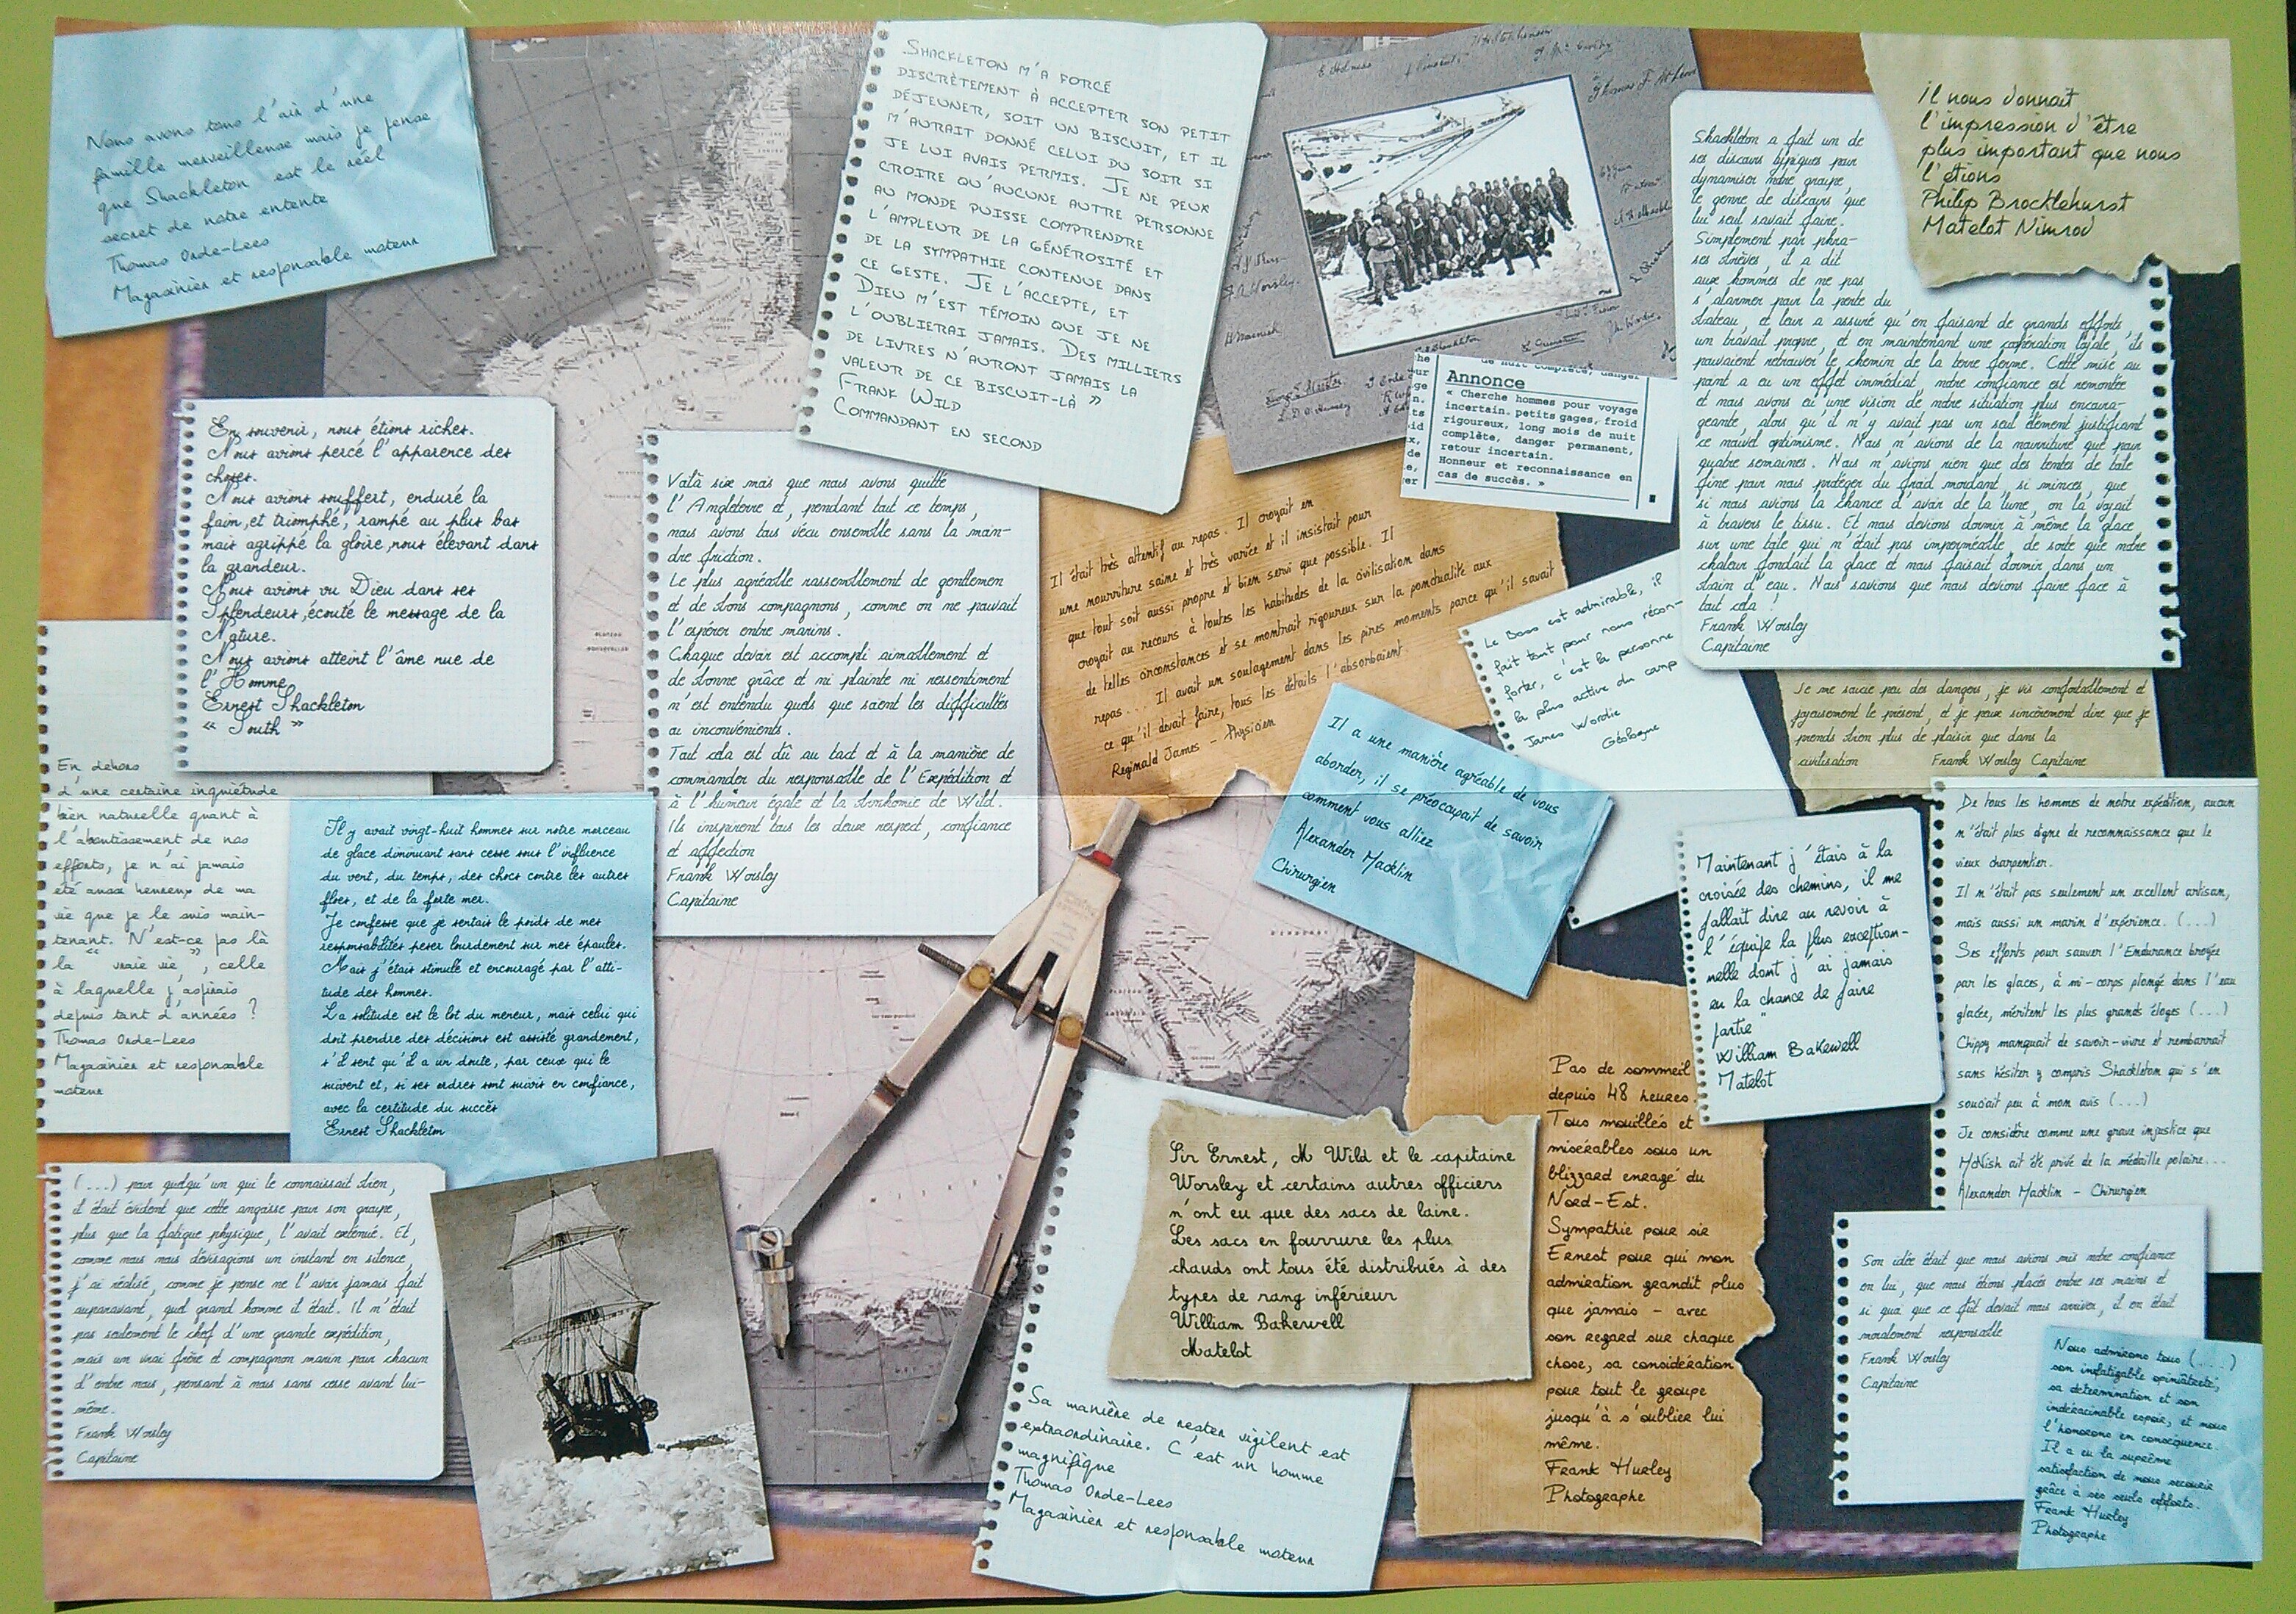 Nous avons tous l'air d'une
famille merveilleuse mais je pense
que Shackleton est le réel
secret de notre entente
Thomas Orde-Lees
Magasinier et responsable moteur
SHACKLETON M'A FORCÉ
DISCRÈTEMENT À ACCEPTER SON PETIT
DÉJEUNER, SOIT UN BISCUIT, ET IL
M'AURAIT DONNÉ CELUI DU SOIR SI
JE LUI AVAIS PERMIS. JE NE PEUX
CROIRE QU'AUCUNE AUTRE PERSONNE
AU MONDE PUISSE COMPRENDRE
L'AMPLEUR DE LA GÉNÉROSITÉ ET
DE LA SYMPATHIE CONTENUE DANS
CE GESTE. JE L'ACCEPTE, ET
DIEU M'EST TÉMOIN QUE JE NE
L'OUBLIERAI JAMAIS. DES MILLIERS
DE LIVRES N'AURONT JAMAIS LA
VALEUR DE CE BISCUIT-LÀ »
FRANK WILD
COMMANDANT EN SECOND
Annonce
« Cherche hommes pour voyage
incertain. petits gages, froid
rigoureux, long mois de nuit
complète, danger permanent,
retour incertain.
Honneur et reconnaissance en
cas de succès. »
Il nous donnait
l'impression d'être
plus important que nous
l'étions
Philip Brocklehurst
Matelot Nimrod
Shackleton a fait un de
ses discours typiques pour
dynamiser notre groupe,
le genre de discours que
lui seul savait faire.
Simplement par phra-
ses brèves, il a dit
aux hommes de ne pas
s'alarmer pour la perte du
bateau, et leur a assuré qu'en faisant de grands efforts,
un travail propre, et en maintenant une coopération loyale, ils
pouvaient retrouver le chemin de la terre ferme. Cette mise au
point a eu un effet immédiat, notre confiance est remontée
et nous avons eu une vision de notre situation plus encoura-
geante, alors qu'il n'y avait pas un seul élément justifiant
ce nouvel optimisme. Nous n'avions de la nourriture que pour
quatre semaines. Nous n'avions rien que des tentes de toile
fine pour nous protéger du froid mordant, si minces, que
si nous avions la chance d'avoir de la lune, on la voyait
à travers le tissu. Et nous devions dormir à même la glace
sur une toile qui n'était pas imperméable, de sorte que notre
chaleur fondait la glace et nous faisait dormir dans un
bain d'eau. Nous savions que nous devions faire face à
tout cela !
Frank Worsley
Capitaine
En souvenir, nous étions riches.
Nous avions percé l'apparence des
choses.
Nous avions souffert, enduré la
faim, et triomphé, rampé au plus bas
mais agrippé la gloire, nous élevant dans
la grandeur.
Nous avions vu Dieu dans ses
Splendeurs, écouté le message de la
Nature.
Nous avions atteint l'âme nue de
l'Homme
Ernest Shackleton
« South »
Voilà six mois que nous avons quitté
l'Angleterre et, pendant tout ce temps,
nous avons tous vécu ensemble sans la moin-
dre friction.
Le plus agréable rassemblement de gentlemen
et de bons compagnons, comme on ne pouvait
l'espérer entre marins.
Chaque devoir est accompli aimablement et
de bonne grâce et ni plainte ni ressentiment
n'est entendu quels que soient les difficultés
ou inconvénients.
Tout cela est dû au tact et à la manière de
commander du responsable de l'Expédition et
à l'humeur égale et la bonhomie de Wild.
Ils inspirent tous les deux respect, confiance
et affection
Frank Worsley
Capitaine
Il était très attentif au repas. Il croyait en
une nourriture saine et très variée et il insistait pour
que tout soit aussi propre et bien servi que possible. Il
croyait au recours à toutes les habitudes de la civilisation dans
de telles circonstances et se montrait rigoureux sur la ponctualité aux
repas... Il avait un soulagement dans les pires moments parce qu'il savait
ce qu'il devait faire, tous les détails l'absorbaient
Reginald James - Physicien
Le Boss est admirable, il
fait tout pour nous récon-
forter, c'est la personne
la plus active du camp
James Wordie
Géologue
Je me soucie peu des dangers, je vis confortablement et
joyeusement le présent, et je peux sincèrement dire que je
prends bien plus de plaisir que dans la
civilisation Frank Worsley Capitaine
Il a une manière agréable de vous
aborder, il se préoccupait de savoir
comment vous alliez
Alexander Macklin
Chirurgien
En dehors
d'une certaine inquiétude
bien naturelle quant à
l'aboutissement de nos
efforts, je n'ai jamais
été aussi heureux de ma
vie que je le suis main-
tenant. N'est-ce pas là
la "vraie vie", celle
à laquelle j'aspirais
depuis tant d'années ?
Thomas Orde-Lees
Magasinier et responsable
moteur
Il y avait vingt-huit hommes sur notre morceau
de glace diminuant sans cesse sous l'influence
du vent, du temps, des chocs contre les autres
floes, et de la forte mer.
Je confesse que je sentais le poids de mes
responsabilités peser lourdement sur mes épaules.
Mais j'étais stimulé et encouragé par l'atti-
tude des hommes.
La solitude est le lot du meneur, mais celui qui
doit prendre des décisions est assisté grandement,
s'il sent qu'il a un doute, par ceux qui le
suivent et, si ses ordres sont suivis en confiance,
avec la certitude du succès
Ernest Shackleton
Maintenant j'étais à la
croisée des chemins, il me
fallait dire au revoir à
l'équipe la plus exception-
nelle dont j'ai jamais
eu la chance de faire
partie"
William Bakewell
Matelot
De tous les hommes de notre expédition, aucun
n'était plus digne de reconnaissance que le
vieux charpentier.
Il n'était pas seulement un excellent artisan,
mais aussi un marin d'expérience. (...)
Ses efforts pour sauver l'Endurance broyée
par les glaces, à mi-corps plongé dans l'eau
glacée, méritent les plus grands éloges (...)
Chippy manquait de savoir-vivre et rembarrait
sans hésiter y compris Shackleton qui s'en
souciait peu à mon avis (...)
Je considère comme une grave injustice que
McNish ait été privé de la médaille polaire...
Alexander Macklin - Chirurgien
(...) pour quelqu'un qui le connaissait bien,
il était évident que cette angoisse pour son groupe,
plus que la fatigue physique, l'avait exténué. Et,
comme nous nous dévisagions un instant en silence,
j'ai réalisé, comme je pense ne l'avoir jamais fait
auparavant, quel grand homme il était. Il n'était
pas seulement le chef d'une grande expédition,
mais un vrai frère et compagnon marin pour chacun
d'entre nous, pensant à nous sans cesse avant lui-
même.
Frank Worsley
Capitaine
Sir Ernest, M Wild et le capitaine
Worsley et certains autres officiers
n'ont eu que des sacs de laine.
Les sacs en fourrure les plus
chauds ont tous été distribués à des
types de rang inférieur
William Bakewell
Matelot
Sa manière de rester vigilent est
extraordinaire. C'est un homme
magnifique
Thomas Orde-Lees
Magasinier et responsable moteur
Pas de sommeil
depuis 48 heures.
Tous mouillés et
misérables sous un
blizzard enragé du
Nord-Est.
Sympathie pour sir
Ernest pour qui mon
admiration grandit plus
que jamais - avec
son regard sur chaque
chose, sa considération
pour tout le groupe
jusqu'à s'oublier lui
même.
Frank Hurley
Photographe
Son idée était que nous avions mis notre confiance
en lui, que nous étions placés entre ses mains et
si quoi que ce fût devait nous arriver, il en était
moralement responsable
Frank Worsley
Capitaine
Nous admirons tous (...)
son infatigable opiniâtreté,
sa détermination et son
indéracinable espoir, et nous
l'honorons en conséquence.
Il a eu la suprême
satisfaction de nous secourir
grâce à ses seuls efforts.
Frank Hurley
Photographe